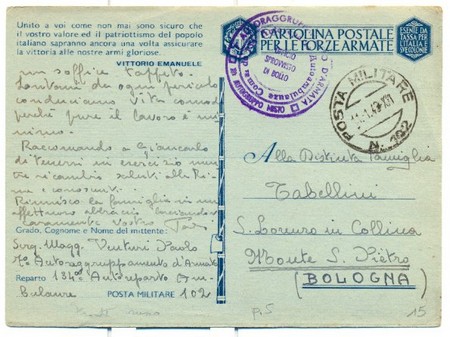 Unito a voi come non mai sono sicuro che
il vostro valore ed il patriottismo del popolo
italiano sapranno ancora una volta assicurare
la vittoria alle nostre armi gloriose.
VITTORIO EMANUELE
un soffice tappeto.
Lontano da ogni pericolo
conduciamo vita comoda
perché pure il lavoro è mi
nimo.
Raccomando a Giancarlo
di tenersi in esercizio men
tre ricambio saluti alle
conoscenti.
Riunisco la famiglia in un
affettuoso abbraccio
caramente Vostro
Grado, Cognome e Nome del mittente:
Serg. Magg. Venturi Paolo
7° Autoraggruppamento d'Armata
Reparto 134° Autoreparto Am-
bulanze POSTA MILITARE 102
CARTOLINA POSTALE
PER LE FORZE ARMATE
ESENTE DA
TASSA PER
L'ITALIA
E COLONIE
POSTA MILITARE
N. 102
Alla Distinta Famiglia
Tabellini
S. Lorenzo in Collina
Monte S. Pietro
(BOLOGNA)
15